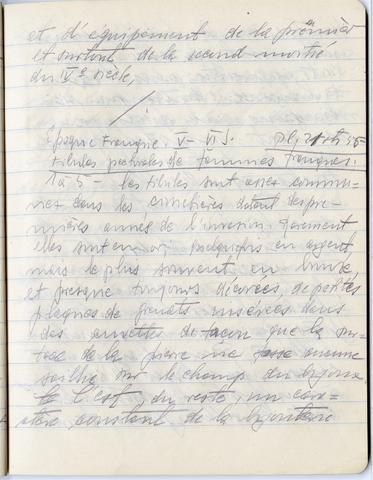 et d'équipement de la première
et surtout de la second moitié
du Vᵉ siècle,
Epoque Franque. V-VI S. pl,
fibules pectorales de femmes franques.
1 à 5 - Les fibules sont assez commu-
nes dans les cimetières datant des pre-
mières années de l'invasion. Rarement
elles sont en or, quelquefois en argent
mais le plus souvent en bronze,
et presque toujours décorées de petites
plaques de grenats insérées dans
des cuvettes de façon que la sur-
face de la pierre ne fasse aucune
saillie sur le champ du bijoux
C'est, du reste, un cara-
ctère constant de la bijouterie